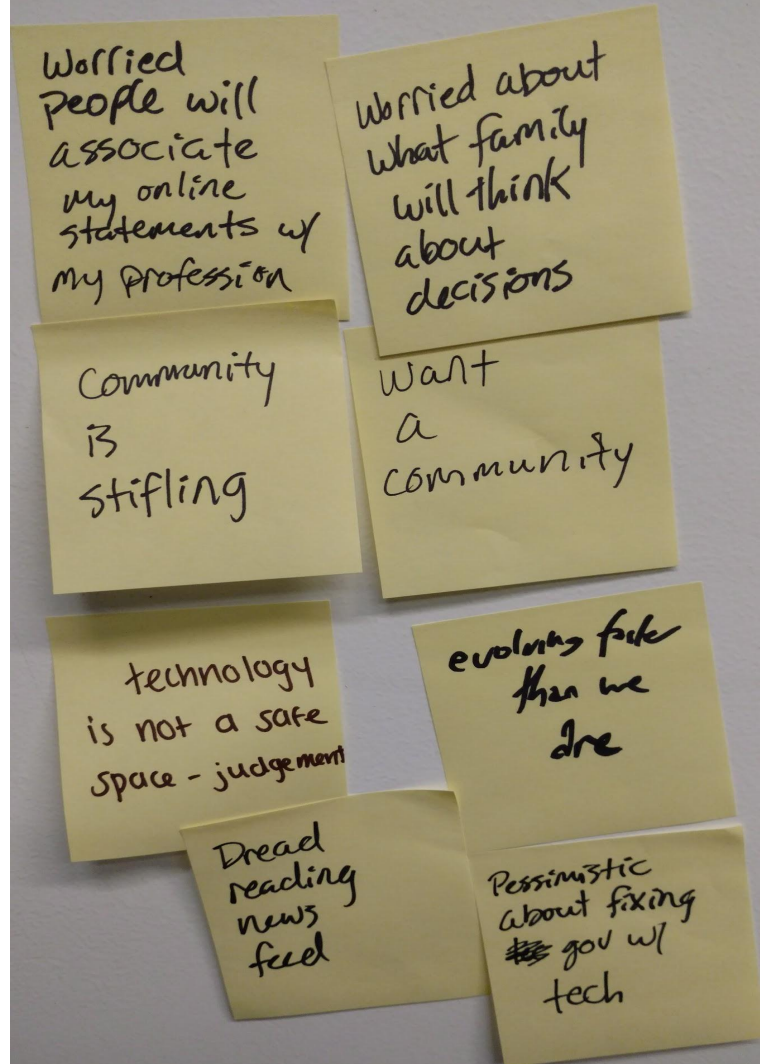 Worried
people will
associate
my online
statements w/
my profession
Worried about
what family
will think
about
decisions
Community
is
stifling
want
a
community
technology
is not a safe
space - judgement
evolving faster
than we
are
Dread
reading
news
feed
Pessimistic
about fixing
gov w/
tech